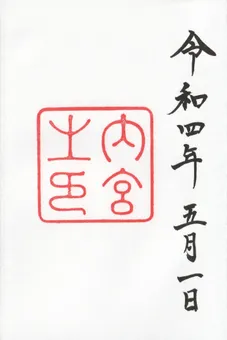 令和四年 五月一日
内宮
之印